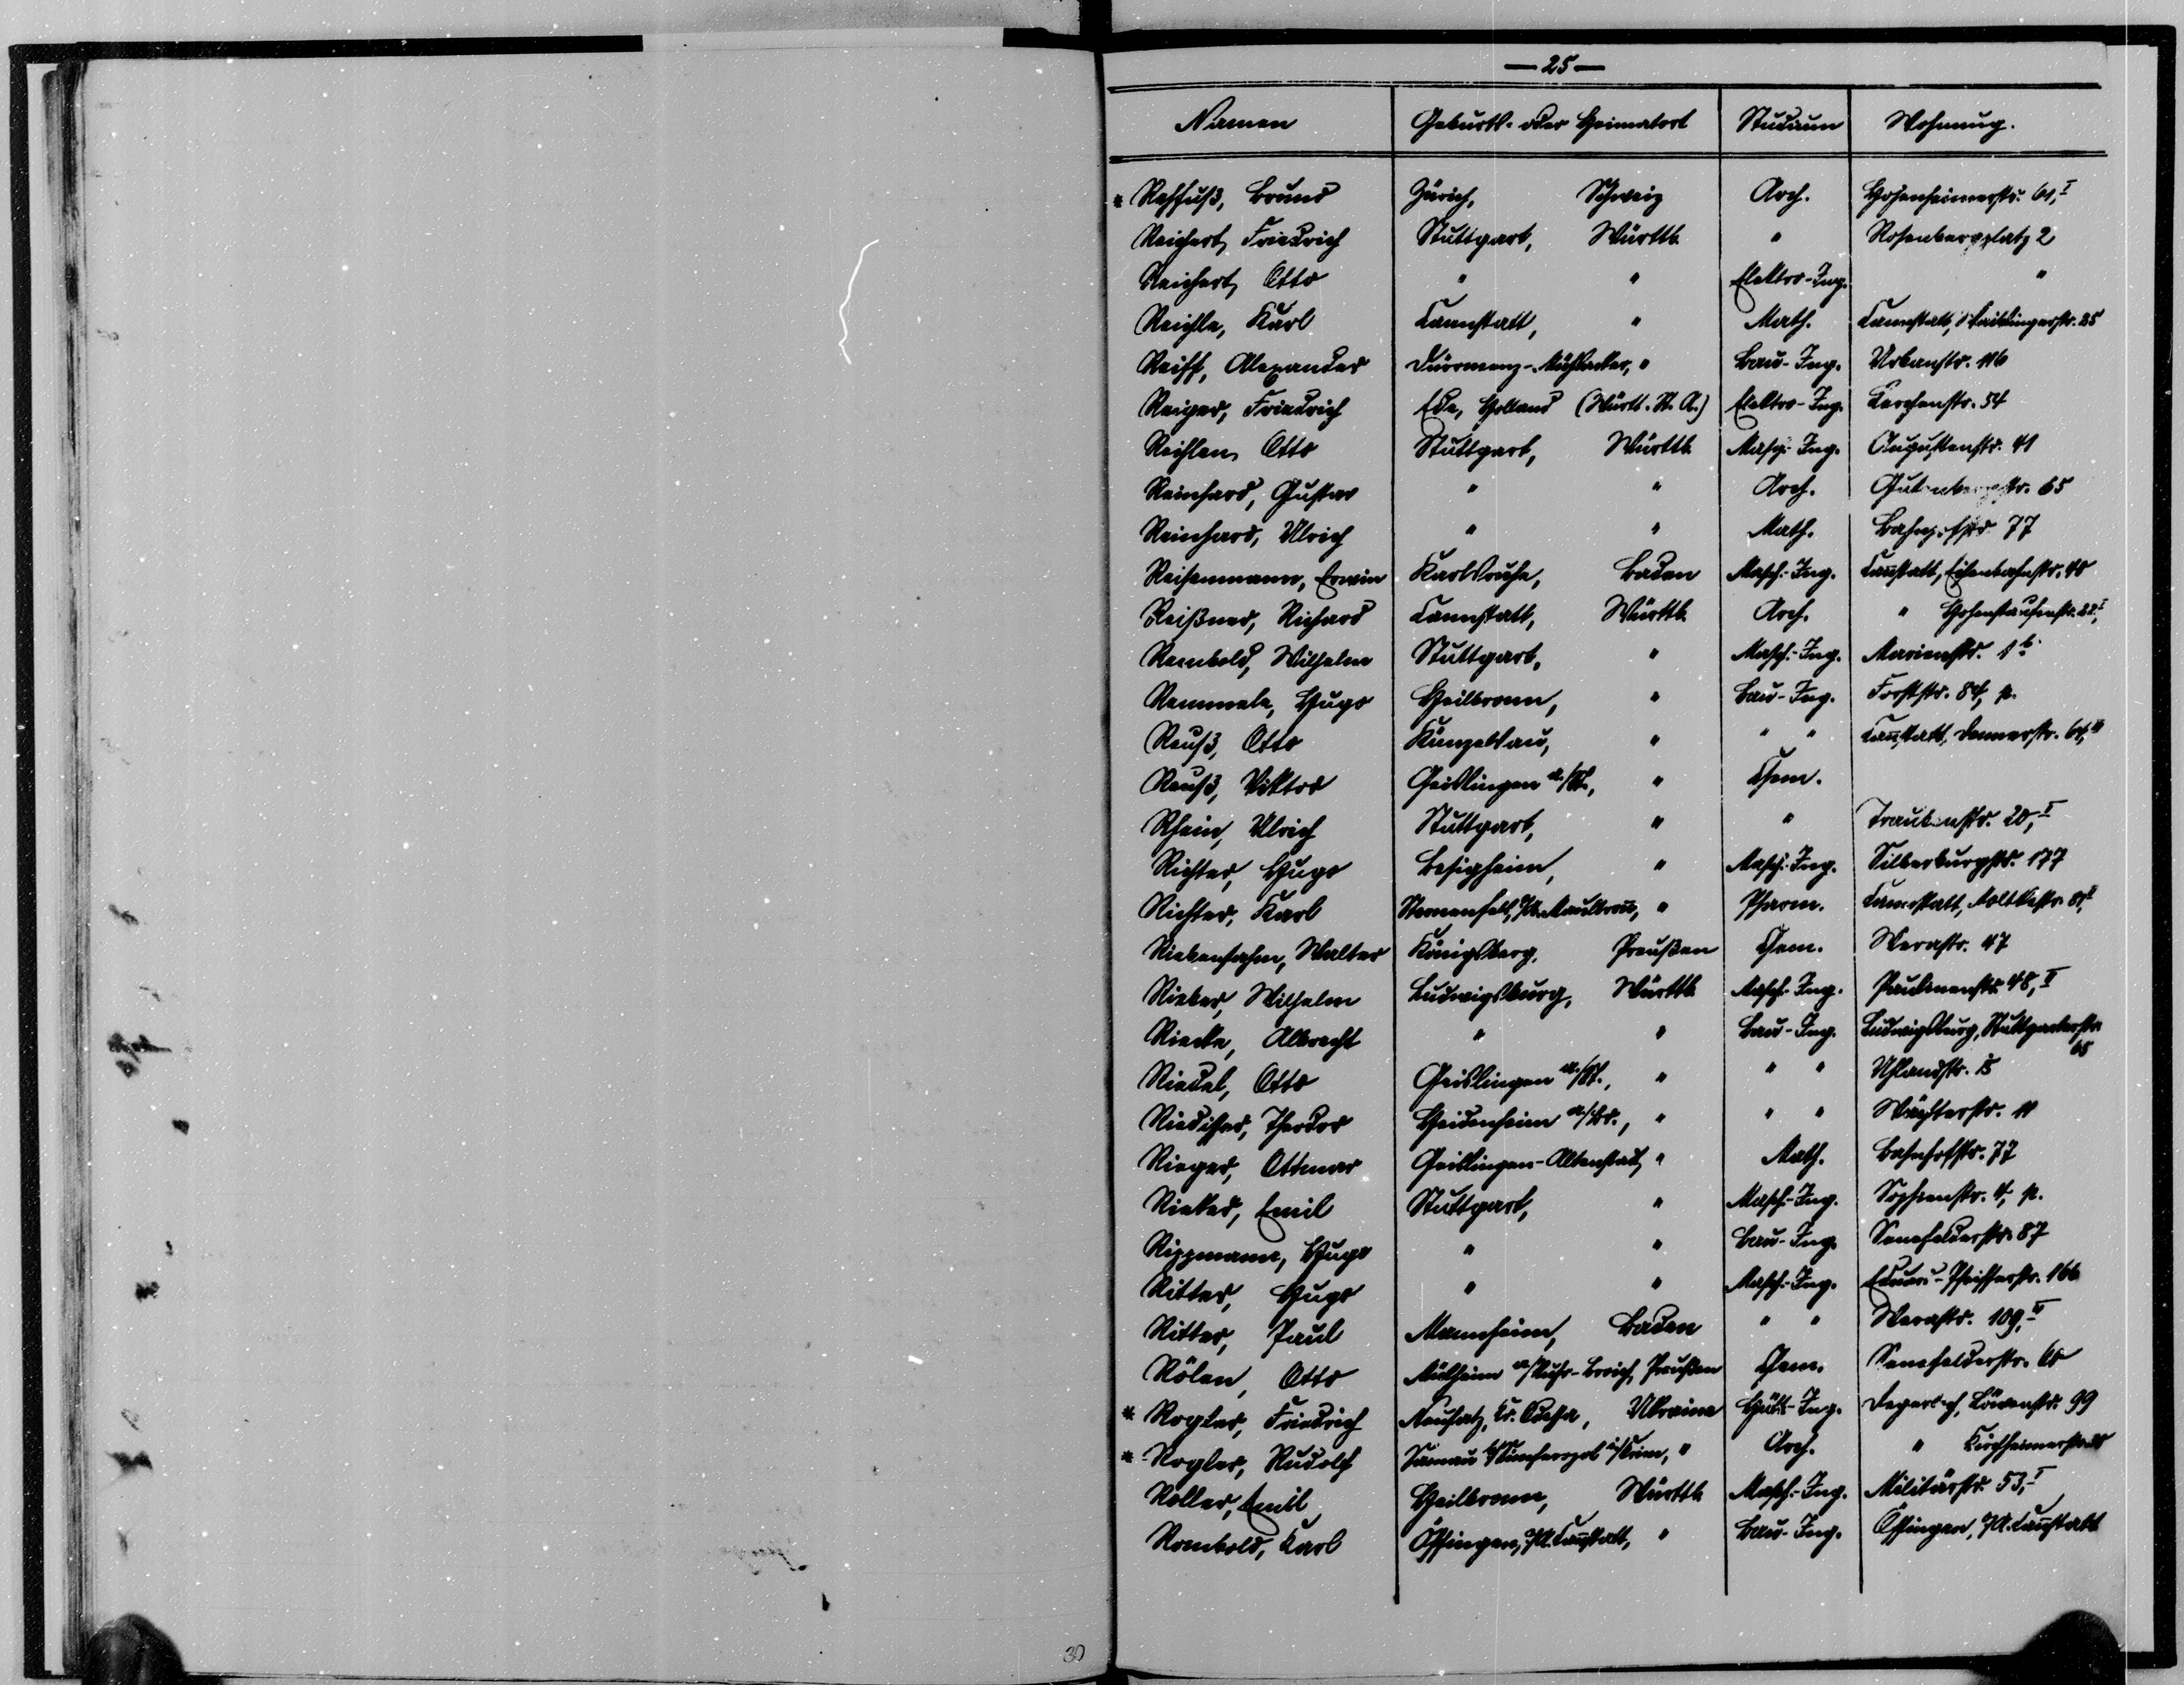 — 25 —
Namen Geburts- oder Heimatort Studium Wohnung.
* Rehfuß, Bruno Zürich, Schweiz Arch. Hohenheimerstr. 61, I
Reichert, Friedrich Stuttgart, Württb. " Rosenbergplatz 2
Reichert, Otto " " Elektro-Ing. "
Reichle, Karl Cannstatt, " Math. Cannstatt, Waiblingerstr. 25
Reiff, Alexander Dürrmenz-Mühlacker, " Bau-Ing. Urbanstr. 116
Reiger, Friedrich Ede, Holland (Württ. St. A.) Elektro-Ing. Lerchenstr. 54
Reihlen, Otto Stuttgart, Württb. Masch.-Ing. Augustenstr. 41
Reinhard, Gustav " " Arch. Gutenbergstr. 65
Reinhard, Ulrich " " Math. Bahnhofstr. 77
Reisenmann, Erwin Karlsruhe, Baden Masch.-Ing. Canstatt, Eisenbahnstr. 40
Reißner, Richard Cannstatt, Württb. Arch. " Hohenstaufenstr. 22, I
Rembold, Wilhelm Stuttgart, " Masch.-Ing. Marienstr. 1 b.
Remmele, Hugo Heilbronn, " Bau-Ing. Forststr. 84, p.
Reuß, Otto Künzelsau, " " " Canstatt, Dennerstr. 64, III
Reuß, Viktor Geislingen a./St., " Chem.
Rhein, Ulrich Stuttgart, " " Traubenstr. 20, I
Richter, Hugo Besigheim, " Masch.-Ing. Silberburgstr. 177
Richter, Karl Sternenfels, O/A. Maulbronn, " Pharm. Cannstatt, Moltkestr. 81, I
Riebensahm, Walter Königsberg, Preußen Chem. Werastr. 47
Rieber, Wilhelm Ludwigsburg, Württb. Masch.-Ing. Paulinenstr. 48, II
Riecke, Albrecht " " Bau-Ing. Ludwigsburg, Stuttgarterstr. 65
Riedel, Otto Geislingen a./St., " " " Uhlandstr. 18
Riedißer, Theodor Heidenheim a./Br., " " " Wächterstr. 11
Rieger, Ottmar Geislingen-Altenstadt, " Math. Bahnhofstr. 77
Rieker, Emil Stuttgart, " Masch.-Ing. Sophienstr. 4, p.
Rippmann, Hugo " " Bau-Ing. Senefelderstr. 87
Ritter, Hugo " " Masch.-Ing. Eduard-Pfeifferstr. 166
Ritter, Paul Mannheim, Baden " " Werastr. 109, II
Rölen, Otto Mülheim a/Ruhr-Broich, Preußen Chem. Senefelderstr. 60
* Rogler, Friedrich Neusatz, Kr. Odessa, Ukraine Hütt-Ing. Degerloch, Löwenstr. 99
* Rogler, Rudolf b/Simferopol i/Krim, " Arch. " Kirchheimerstr.
Roller, Emil Heilbronn, Württb. Masch.-Ing. Militärstr. 53, I
Rombold, Karl Öffingen, O/A. Canstatt, " Bau-Ing. Öffingen, O/A. Canstatt
30